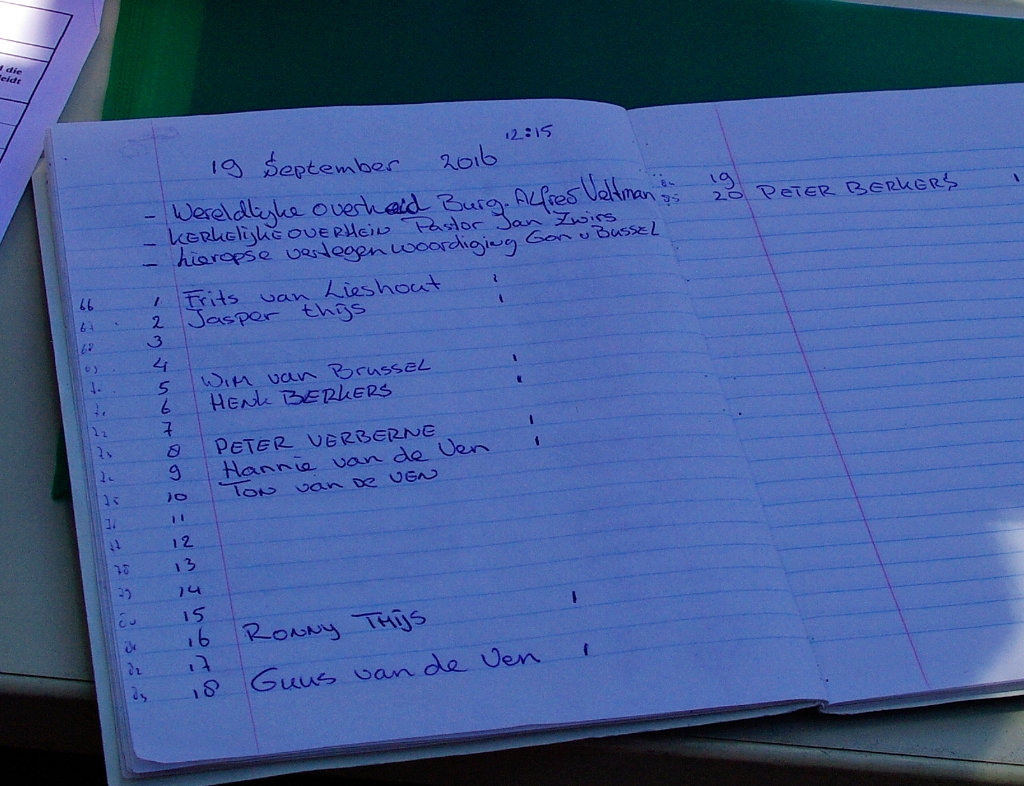 d die
leidt
12:15
19 September 2016
- Wereldlijke overheid Burg. Alfred Veltman
- KERKELIJKE OVERHEID Pastor Jan Zwirs
- hieropse vertegenwoordiging Gon v Bussel
66 1 Frits van Lieshout
67 2 Jasper thijs
68 3
69 4
70 5 Wim van Brussel
71 6 HENK BERKERS
72 7
8 PETER VERBERNE
9 Hannie van de Ven
75 10 TON van DE VEN
11
12
78 13
79 14
15
16 RONNY THIJS
82 17
83 18 Guus van de Ven
19
85 20 PETER BERKERS